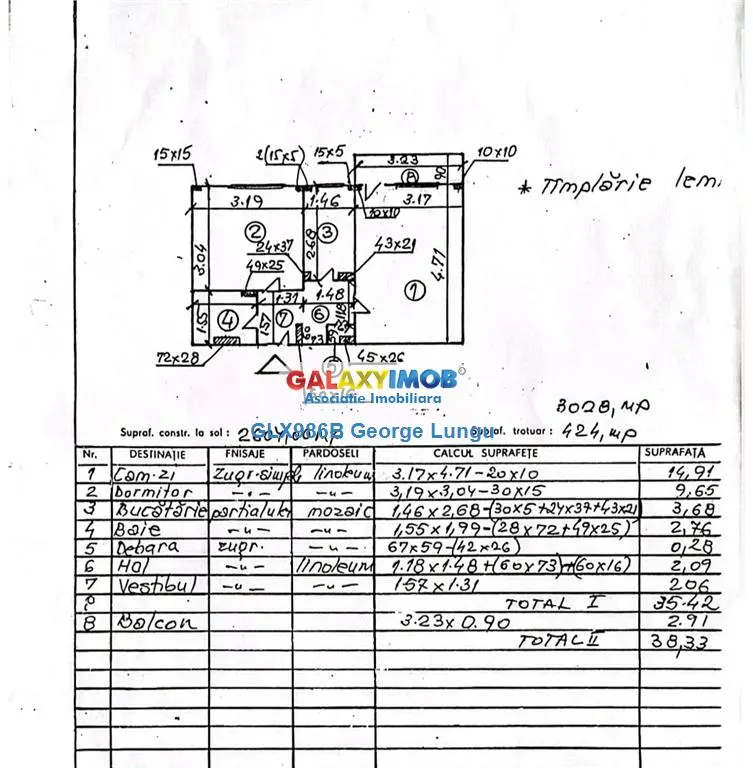 15x15 2(15x5) 15x5 3.23 10x10
8 90
* Tîmplărie lem
3.19 1.46 10x10 3.17
2 3
24x37 2.68 43x21
3.04 49x25 4.71
1.31 1.48 1
1.55 4 1.57 7 6 1.18
60 73 59
72x28 5 45x26
GALAXYIMOB
Asociatie Imobiliara
3028, mp
Supraf. constr. la sol : Supraf. trotuar : 424, mp
GLX986B George Lungu
Nr. DESTINAȚIE FNISAJE PARDOSELI CALCUL SUPRAFEȚE SUPRAFAȚĂ
1 Cam-zi Zugr.simpl linoleum 3.17x4.71-20x10 14,91
2 Dormitor -"- -"- 3,19x3,04-30x15 9,65
3 Bucătărie parțialuk mozaic 1,46x2,68-(30x5+24x37+43x21) 3,68
4 Baie -"- -"- 1,55x1,99-(28x72+49x25) 2,76
5 Debara zugr. -"- 67x59-(42x26) 0,28
6 Hol -"- linoleum 1.18x1.48+(60x73)+(60x16) 2,09
7 Vestibul -"- -"- 1.57x1.31 206
TOTAL I 35.42
8 Balcon 3.23x0.90 2.91
TOTAL II 38,33